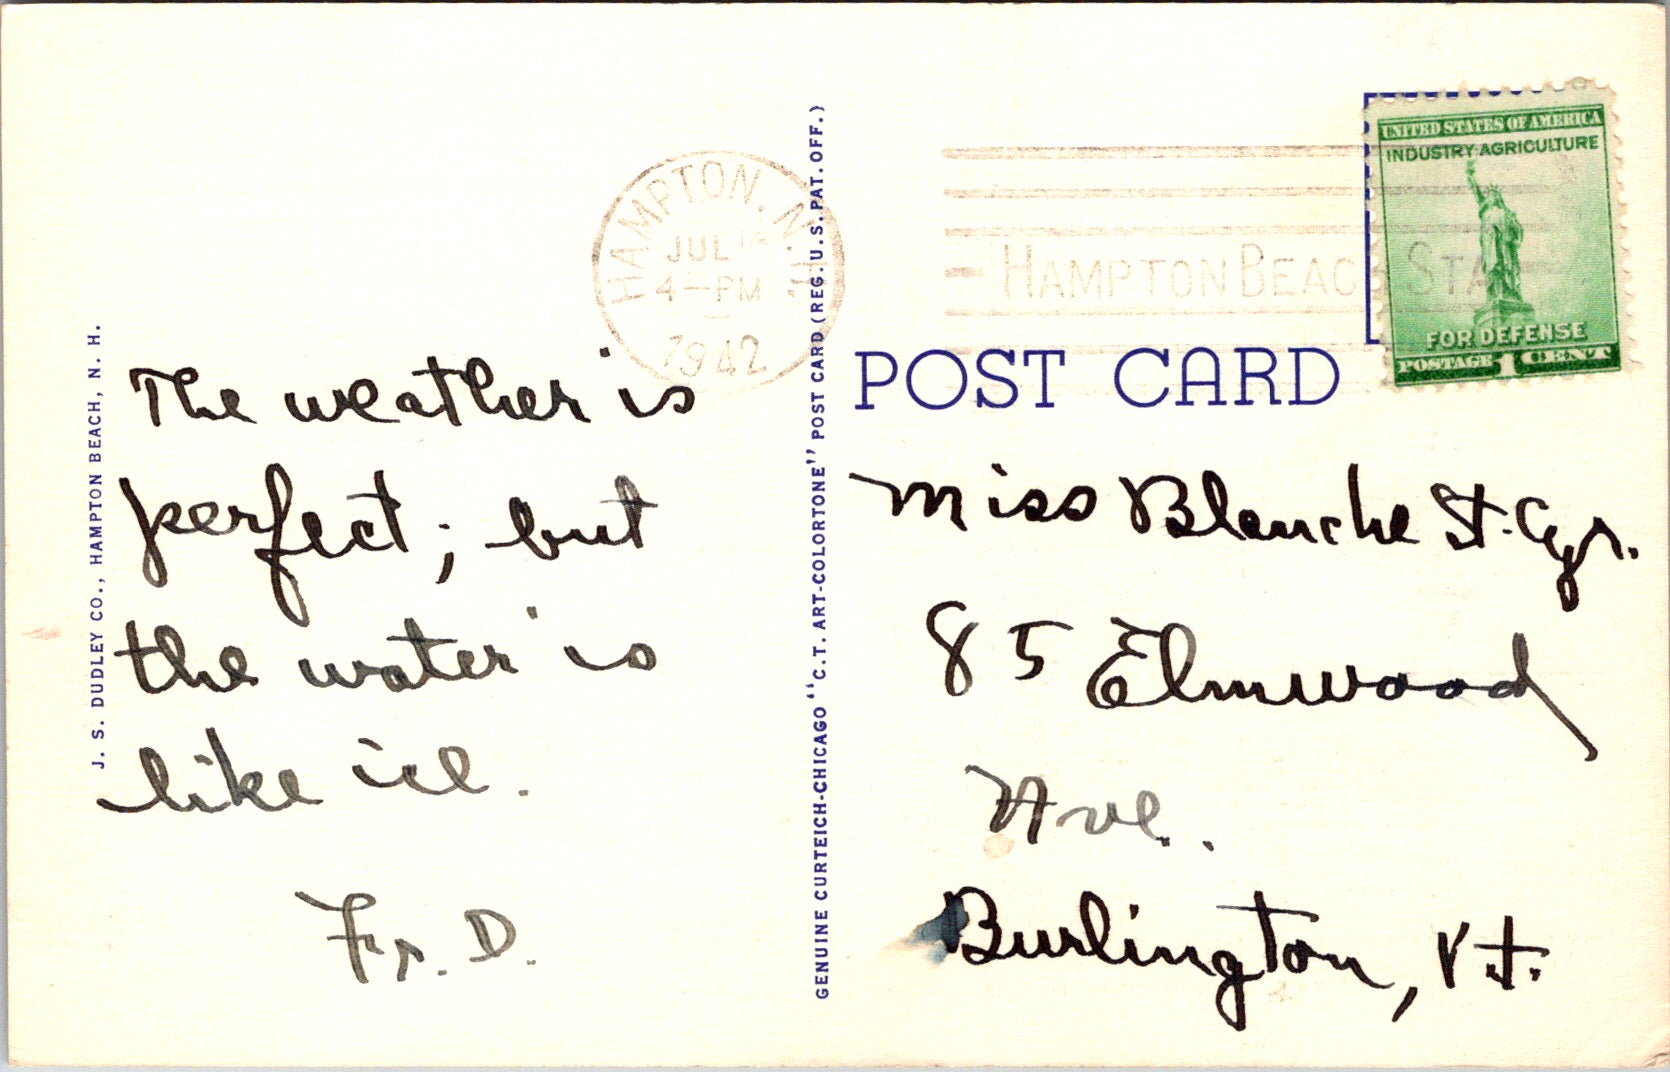 J. S. DUDLEY CO., HAMPTON BEACH, N. H.
The weather is
perfect; but
the water is
like ice.
Fr. D.
GENUINE CURTEICH-CHICAGO "C.T. ART-COLORTONE" POST CARD (REG. U.S. PAT. OFF.)
HAMPTON, N.H.
JUL
4-PM
1942
HAMPTON BEACH STA
UNITED STATES OF AMERICA
INDUSTRY-AGRICULTURE
FOR DEFENSE
POSTAGE 1 CENT
POST CARD
Miss Blanche St. Cyr.
85 Elmwood
Ave.
Burlington, Vt.